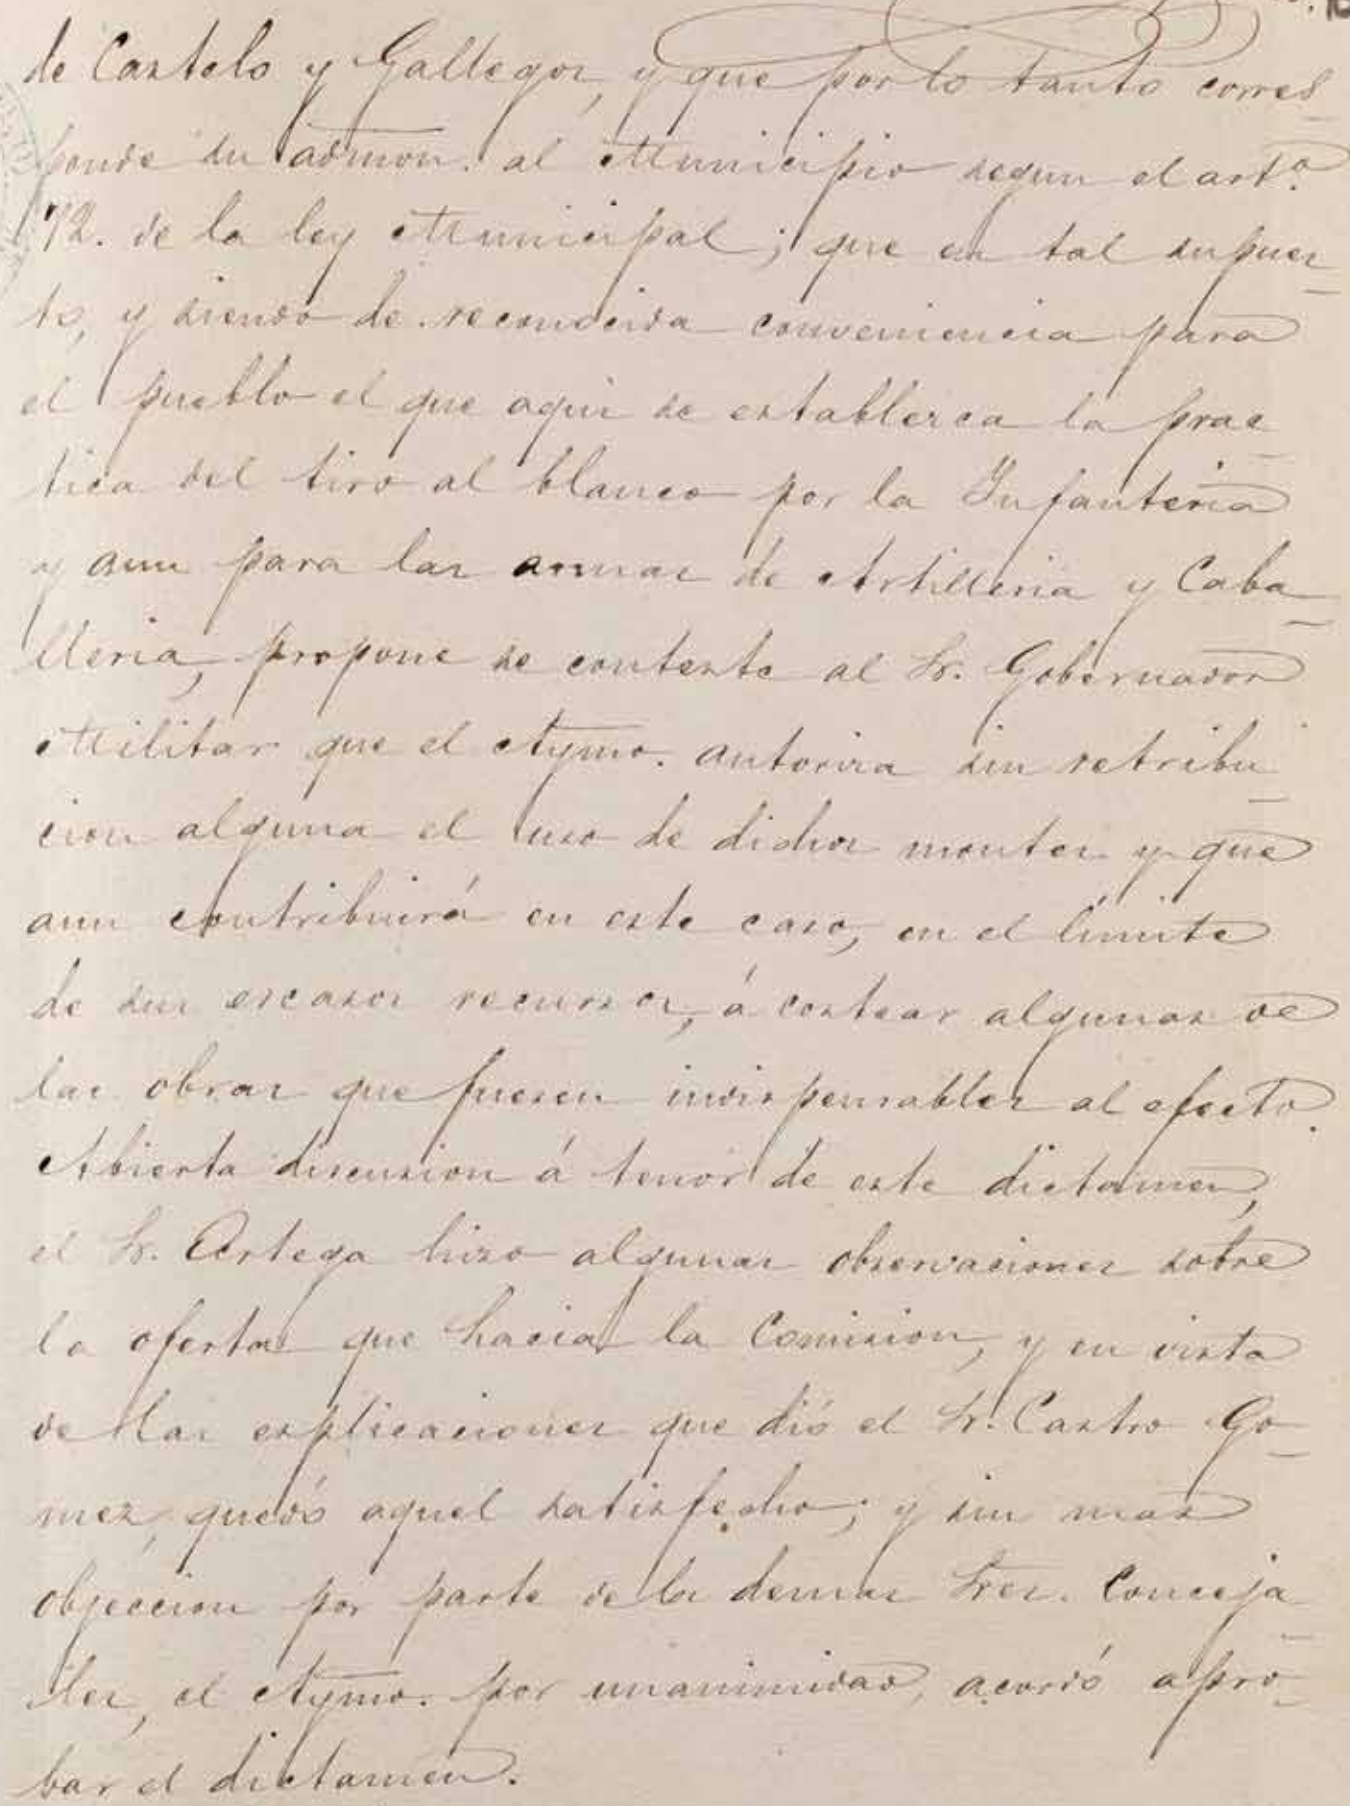 de Castelo y Gallegos, y que por lo tanto corres
ponde su admon. al Municipio segun el artº.
72. de la ley Municipal; que en tal supues
to, y siendo de reconocida conveniencia para
el pueblo el que aqui se establezca la prac
tica del tiro al blanco por la Infanteria
y aun para las armas de Artilleria y Caba
lleria, propone se conteste al Sr. Gobernador
Militar que el Aymo. autoriza sin retribu
cion alguna el uso de dichos montes y que
aun contribuirá en este caso, en el límite
de sus escasos recursos, á costear algunas de
las obras que fuesen indispensables al efecto.
Abierta discusion á tenor de este dictamen,
el Sr. Artega hizo algunas observaciones sobre
la oferta que hacia la Comision, y en vista
de las esplicaciones que dió el Sr. Castro Go
mez, quedó aquel satisfecho; y sin mas
objeccion por parte de los demas Sres. Conceja
les, el Aymo. por unanimidad, acordó apro
bar el dictamen.